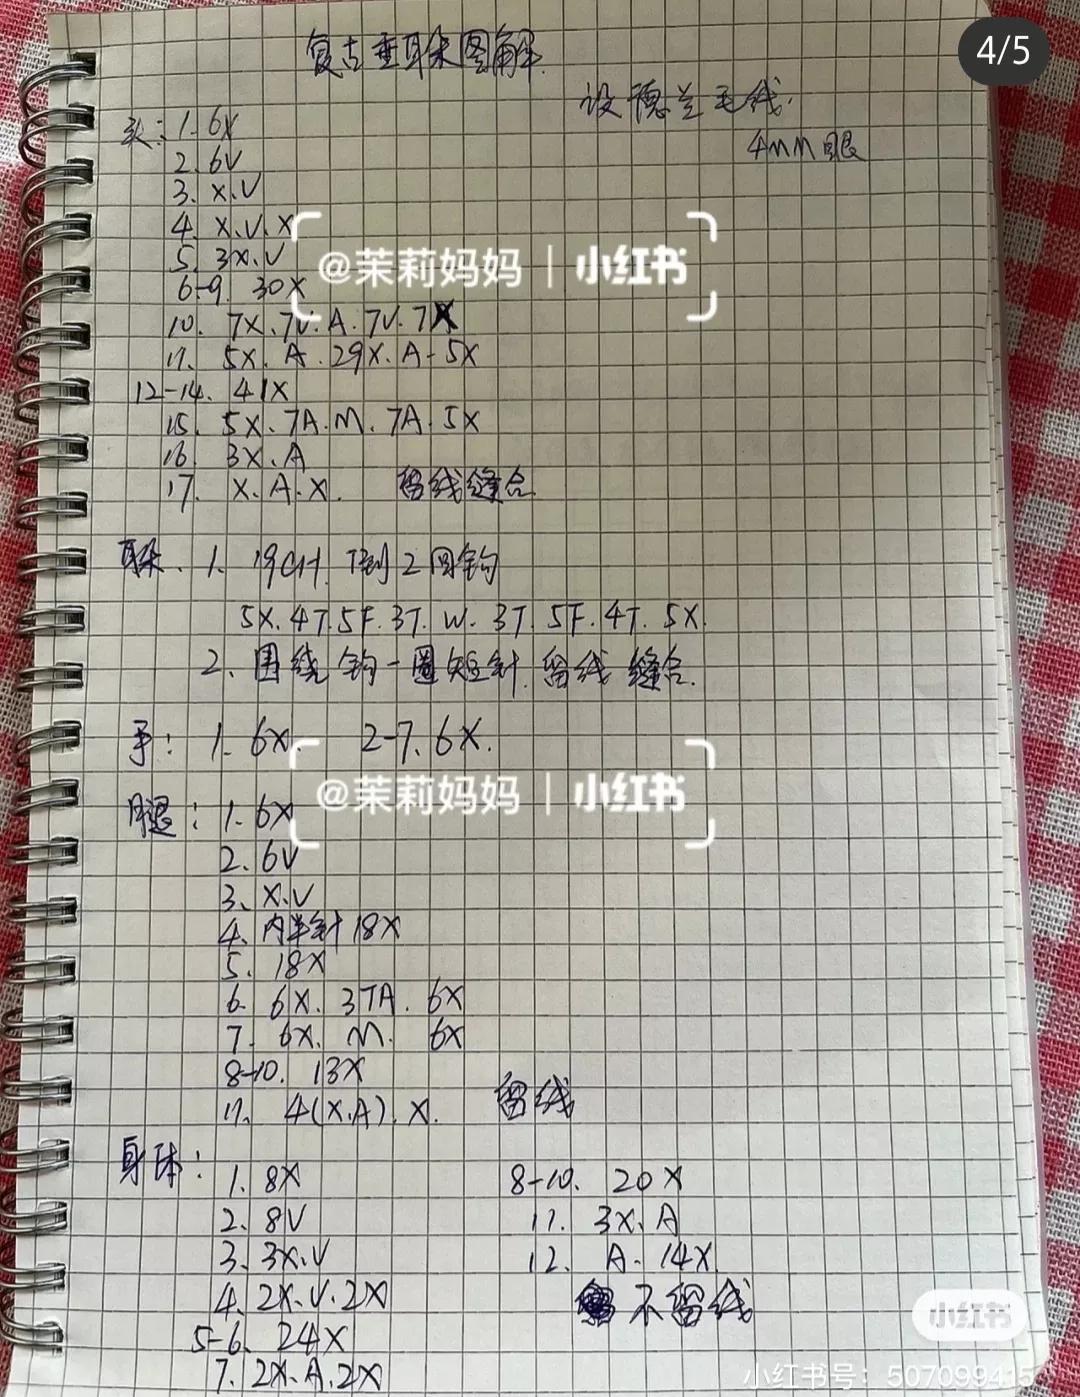 4/5
复古垂耳朵图解.
设得兰毛线.
4MM眼
头: 1. 6X
2. 6V
3. X.V
4. X.V.X
5. 3X.V
@茉莉妈妈 | 小红书
6-9. 30X
10. 7X.7V.A.7V.7X
11. 5X.A.29X.A-5X
12-14. 41X
15. 5X.7A.M.7A.5X
16. 3X.A
17. X.A.X. 留线缝合.
耳朵. 1. 19CH. 倒2回钩
5X.4T.5F.3T.W.3T.5F.4T.5X.
2. 围绕钩一圈短针.留线缝合.
手: 1. 6X. 2-7. 6X.
@茉莉妈妈 | 小红书
腿: 1. 6X
2. 6V
3. X.V
4. 内半针18X
5. 18X
6. 6X. 3TA. 6X
7. 6X. M. 6X
8-10. 13X
11. 4(X.A). X. 留线
身体: 1. 8X
2. 8V
3. 3X.V
4. 2X.V.2X
5-6. 24X
7. 2X.A.2X
8-10. 20X
11. 3X.A
12. A.14X
不留线
小红书
小红书号: 507099415